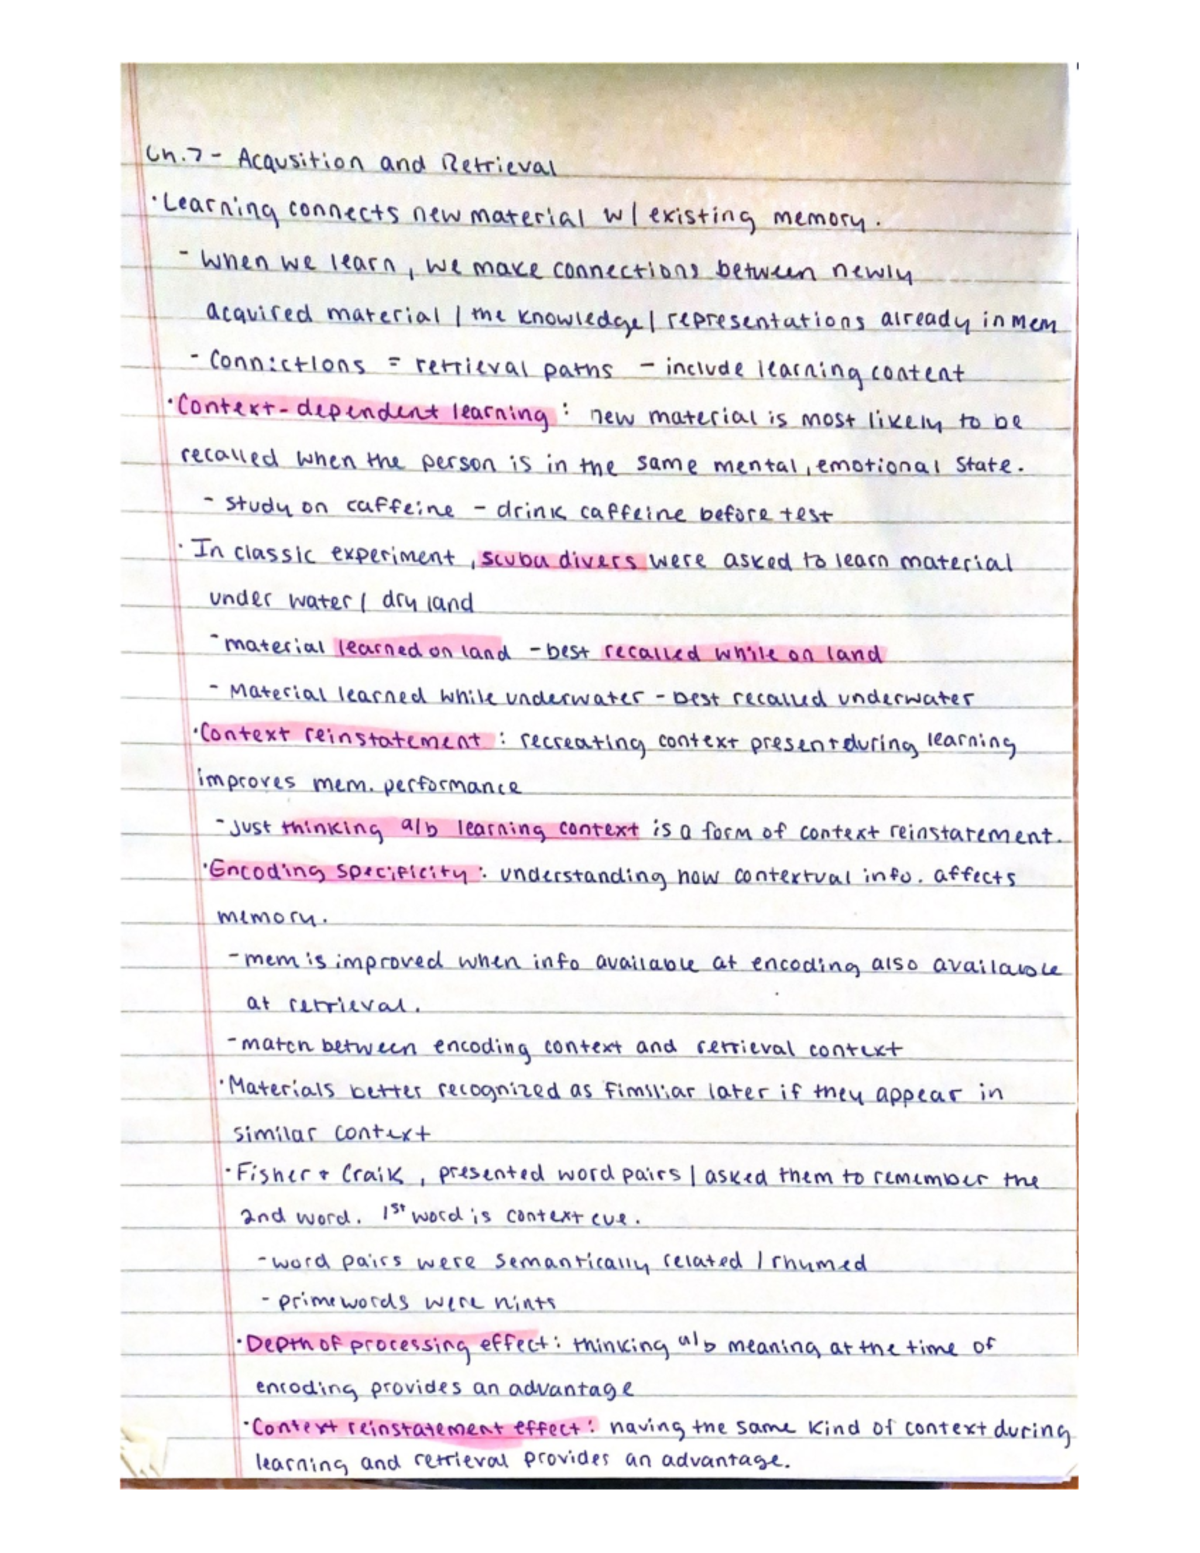 Ch.7- Acqusition and Retrieval
·Learning connects new material w/ existing memory.
- When we learn, we make connections between newly
acquired material / the knowledge / representations already in mem
- Connections = retrieval paths - include learning content
·Context-dependent learning: new material is most likely to be
recalled when the person is in the same mental, emotional state.
- study on caffeine - drink caffeine before test
·In classic experiment, scuba divers were asked to learn material
under water / dry land
-material learned on land -best recalled while on land
- Material learned while underwater - best recalled underwater
·Context reinstatement: recreating context present during learning
improves mem. performance
-Just thinking a/b learning context is a form of context reinstatement.
·Encoding specificity: understanding how contextual info. affects
memory.
-mem is improved when info available at encoding also available
at retrieval.
-match between encoding context and retrieval context
·Materials better recognized as fimiliar later if they appear in
similar context
·Fisher + Craik, presented word pairs / asked them to remember the
2nd word. 1st word is context cue.
-word pairs were semantically related / rhymed
- prime words were hints
·Depth of processing effect: thinking a/b meaning at the time of
encoding provides an advantage
·Context reinstatement effect: having the same kind of context during
learning and retrieval provides an advantage.